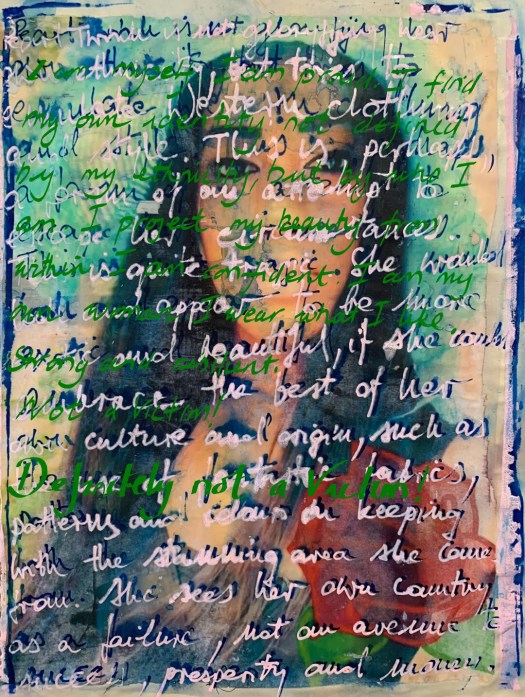 is not glorifying her
but tries to
emulate Western clothing
and style. This is perhaps,
a form of an attempt to
escape her circumstances.
is quite tragic. She would
appear to be more
and beautiful, if she could
embrace the best of her
own culture and origin, such as
fabrics,
patterns and colours in keeping
with the stunning area she came
from. She sees her own country
as a failure, not an avenue
prosperity and money.
myself, I am proud to find
my own identity not defined
by my ethnicity, but by who I
am. I project my beauty from
within. I confident. I am my
own woman. I wear what I like.
Strong and
Not a Victim!
Definitely not a Victim!